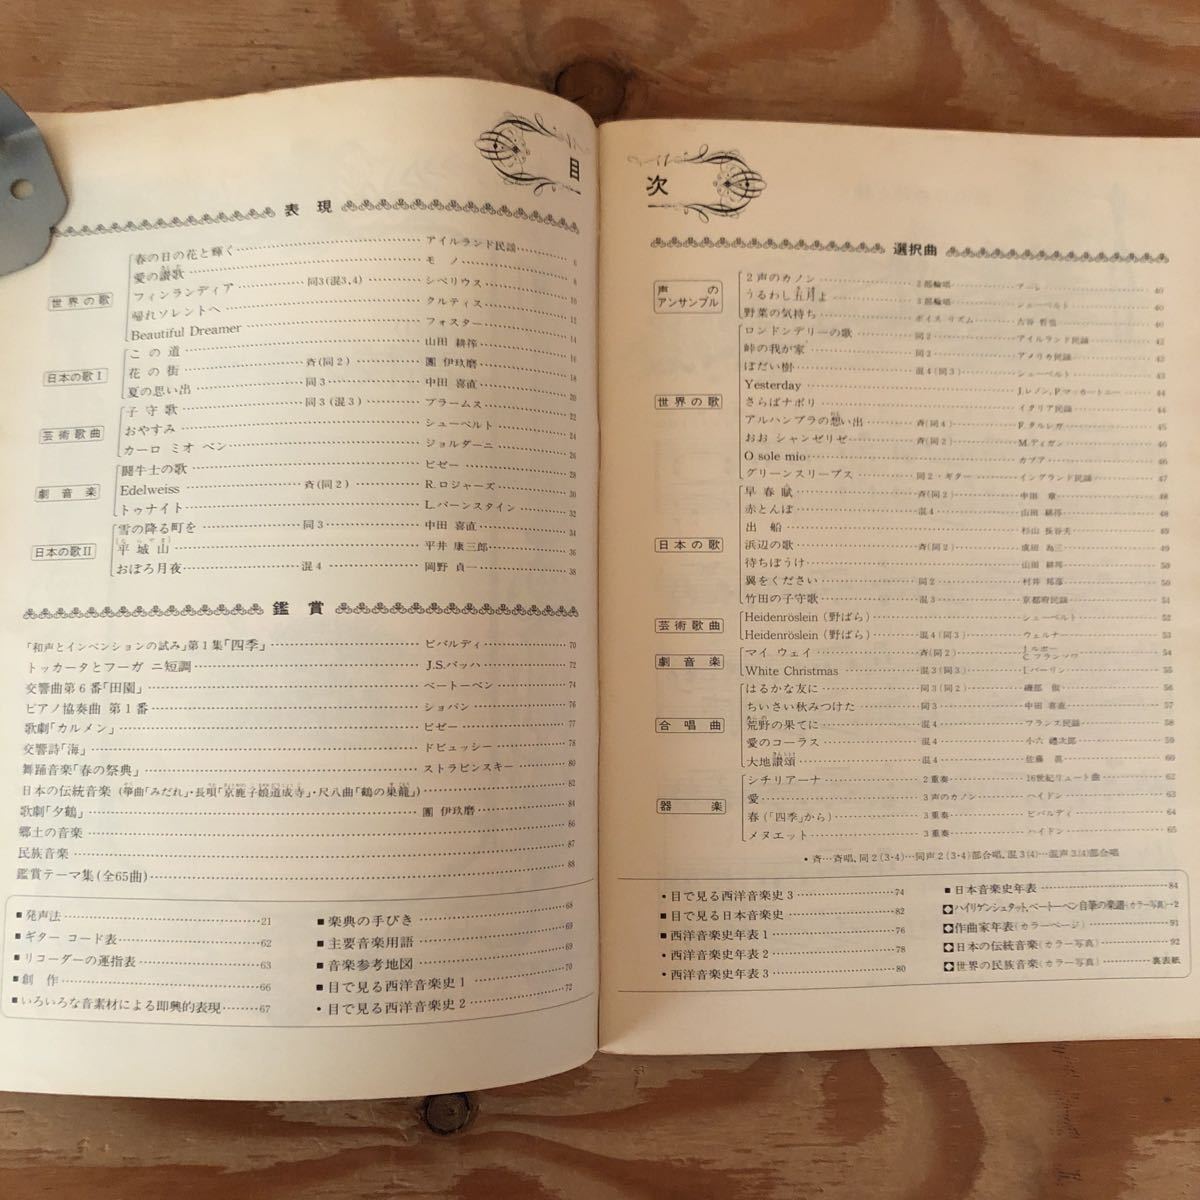 目
表現
世界の歌
春の日の花と輝く アイルランド民謡 6
愛の讃歌 モノー 8
フィンランディア 同3(混3,4) シベリウス 10
帰れソレントへ クルティス 12
Beautiful Dreamer フォスター 14
日本の歌 I
この道 山田 耕筰 16
花の街 斉(同2) 團 伊玖磨 18
夏の思い出 同3 中田 喜直 20
芸術歌曲
子守歌 同3(混3) ブラームス 22
おやすみ シューベルト 24
カーロ ミオ ベン ジョルダーニ 26
劇音楽
闘牛士の歌 ビゼー 28
Edelweiss 斉(同2) R.ロジャーズ 30
トゥナイト L.バーンスタイン 32
日本の歌 II
雪の降る町を 同3 中田 喜直 34
平城山 平井 康三郎 36
おぼろ月夜 混4 岡野 貞一 38
鑑賞
「和声とインベンションの試み」第1集「四季」 ビバルディ 70
トッカータとフーガ ニ短調 J.S.バッハ 72
交響曲第6番「田園」 ベートーベン 74
ピアノ協奏曲 第1番 ショパン 76
歌劇「カルメン」 ビゼー 77
交響詩「海」 ドビュッシー 78
舞踊音楽「春の祭典」 ストラビンスキー 80
日本の伝統音楽 (箏曲「みだれ」・長唄「京鹿子娘道成寺」・尺八曲「鶴の巣籠」) 82
歌劇「夕鶴」 團 伊玖磨 84
郷土の音楽 86
民族音楽 87
鑑賞テーマ集(全65曲) 88
■発声法 21
■ギター コード表 62
■リコーダーの運指表 63
■創作 66
■いろいろな音素材による即興的表現 67
■楽典の手びき 68
■主要音楽用語 69
■音楽参考地図 69
■目で見る西洋音楽史 1 70
・目で見る西洋音楽史 2 72
次
選択曲
声のアンサンブル
2声のカノン 2部輪唱 アーレ 40
うるわし五月よ 3部輪唱 シューベルト 40
野菜の気持ち ボイス リズム 古谷 哲也 40
世界の歌
ロンドンデリーの歌 同2 アイルランド民謡 42
峠の我が家 同2 アメリカ民謡 42
ぼだい樹 混4(同3) シューベルト 43
Yesterday J.レノン,P.マッカートニー 44
さらばナポリ イタリア民謡 44
アルハンブラの想い出 斉(同4) F.タルレガ 45
おお シャンゼリゼ 斉(同2) M.ディガン 46
O sole mio カプア 46
グリーンスリーブス 同2・ギター イングランド民謡 47
日本の歌
早春賦 斉(同2) 中田 章 48
赤とんぼ 混4 山田 耕筰 48
出船 杉山 長谷夫 49
浜辺の歌 斉(同2) 成田 為三 49
待ちぼうけ 山田 耕筰 50
翼をください 同2 村井 邦彦 50
竹田の子守歌 混3 京都府民謡 51
芸術歌曲
Heidenröslein (野ばら) シューベルト 52
Heidenröslein (野ばら) 混4(同3) ウェルナー 53
劇音楽
マイ ウェイ 斉(同2) J.ルボー C.フランソワ 54
White Christmas 混3(同3) I.バーリン 55
合唱曲
はるかな友に 同3(同2) 磯部 俶 56
ちいさい秋みつけた 同3 中田 喜直 57
荒野の果てに 混4 フランス民謡 58
愛のコーラス 混4 小六 禮次郎 59
大地讃頌 混4 佐藤 眞 60
器楽
シチリアーナ 2重奏 16世紀リュート曲 62
愛 3声のカノン ハイドン 63
春(「四季」から) 3重奏 ビバルディ 64
メヌエット 3重奏 ハイドン 65
・斉…斉唱、同2(3・4)…同声2(3・4)部合唱、混3(4)…混声3(4)部合唱
・目で見る西洋音楽史 3 74
■目で見る日本音楽史 82
■西洋音楽史年表 1 76
・西洋音楽史年表 2 78
・西洋音楽史年表 3 80
■日本音楽史年表 84
ハイリゲンシュタット,ベートーベン自筆の楽譜(カラー写真) 2
作曲家年表(カラーページ) 91
日本の伝統音楽(カラー写真) 92
世界の民族音楽(カラー写真) 裏表紙